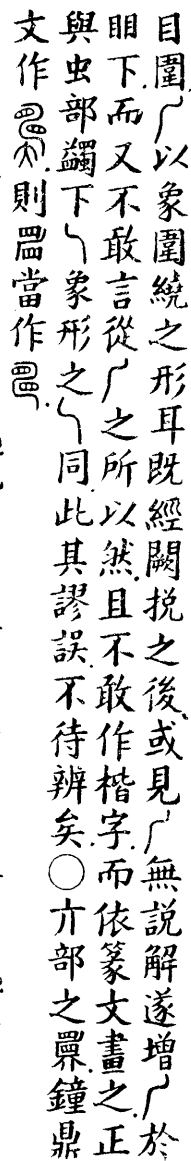 目圍以象圍繞之形耳既經闕挩之後或見無說解遂增於
䀠下而又不敢言從之所以然且不敢作楷字而依篆文畫之正
與虫部蠲下乀象形之乀同此其謬誤不待辨矣○亣部之鐘鼎
文作則當作